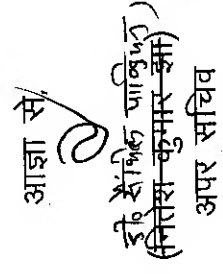 आज्ञा से,
डी० सेंथिल पाण्डियन)
(नितेश कुमार झा)
अपर सचिव